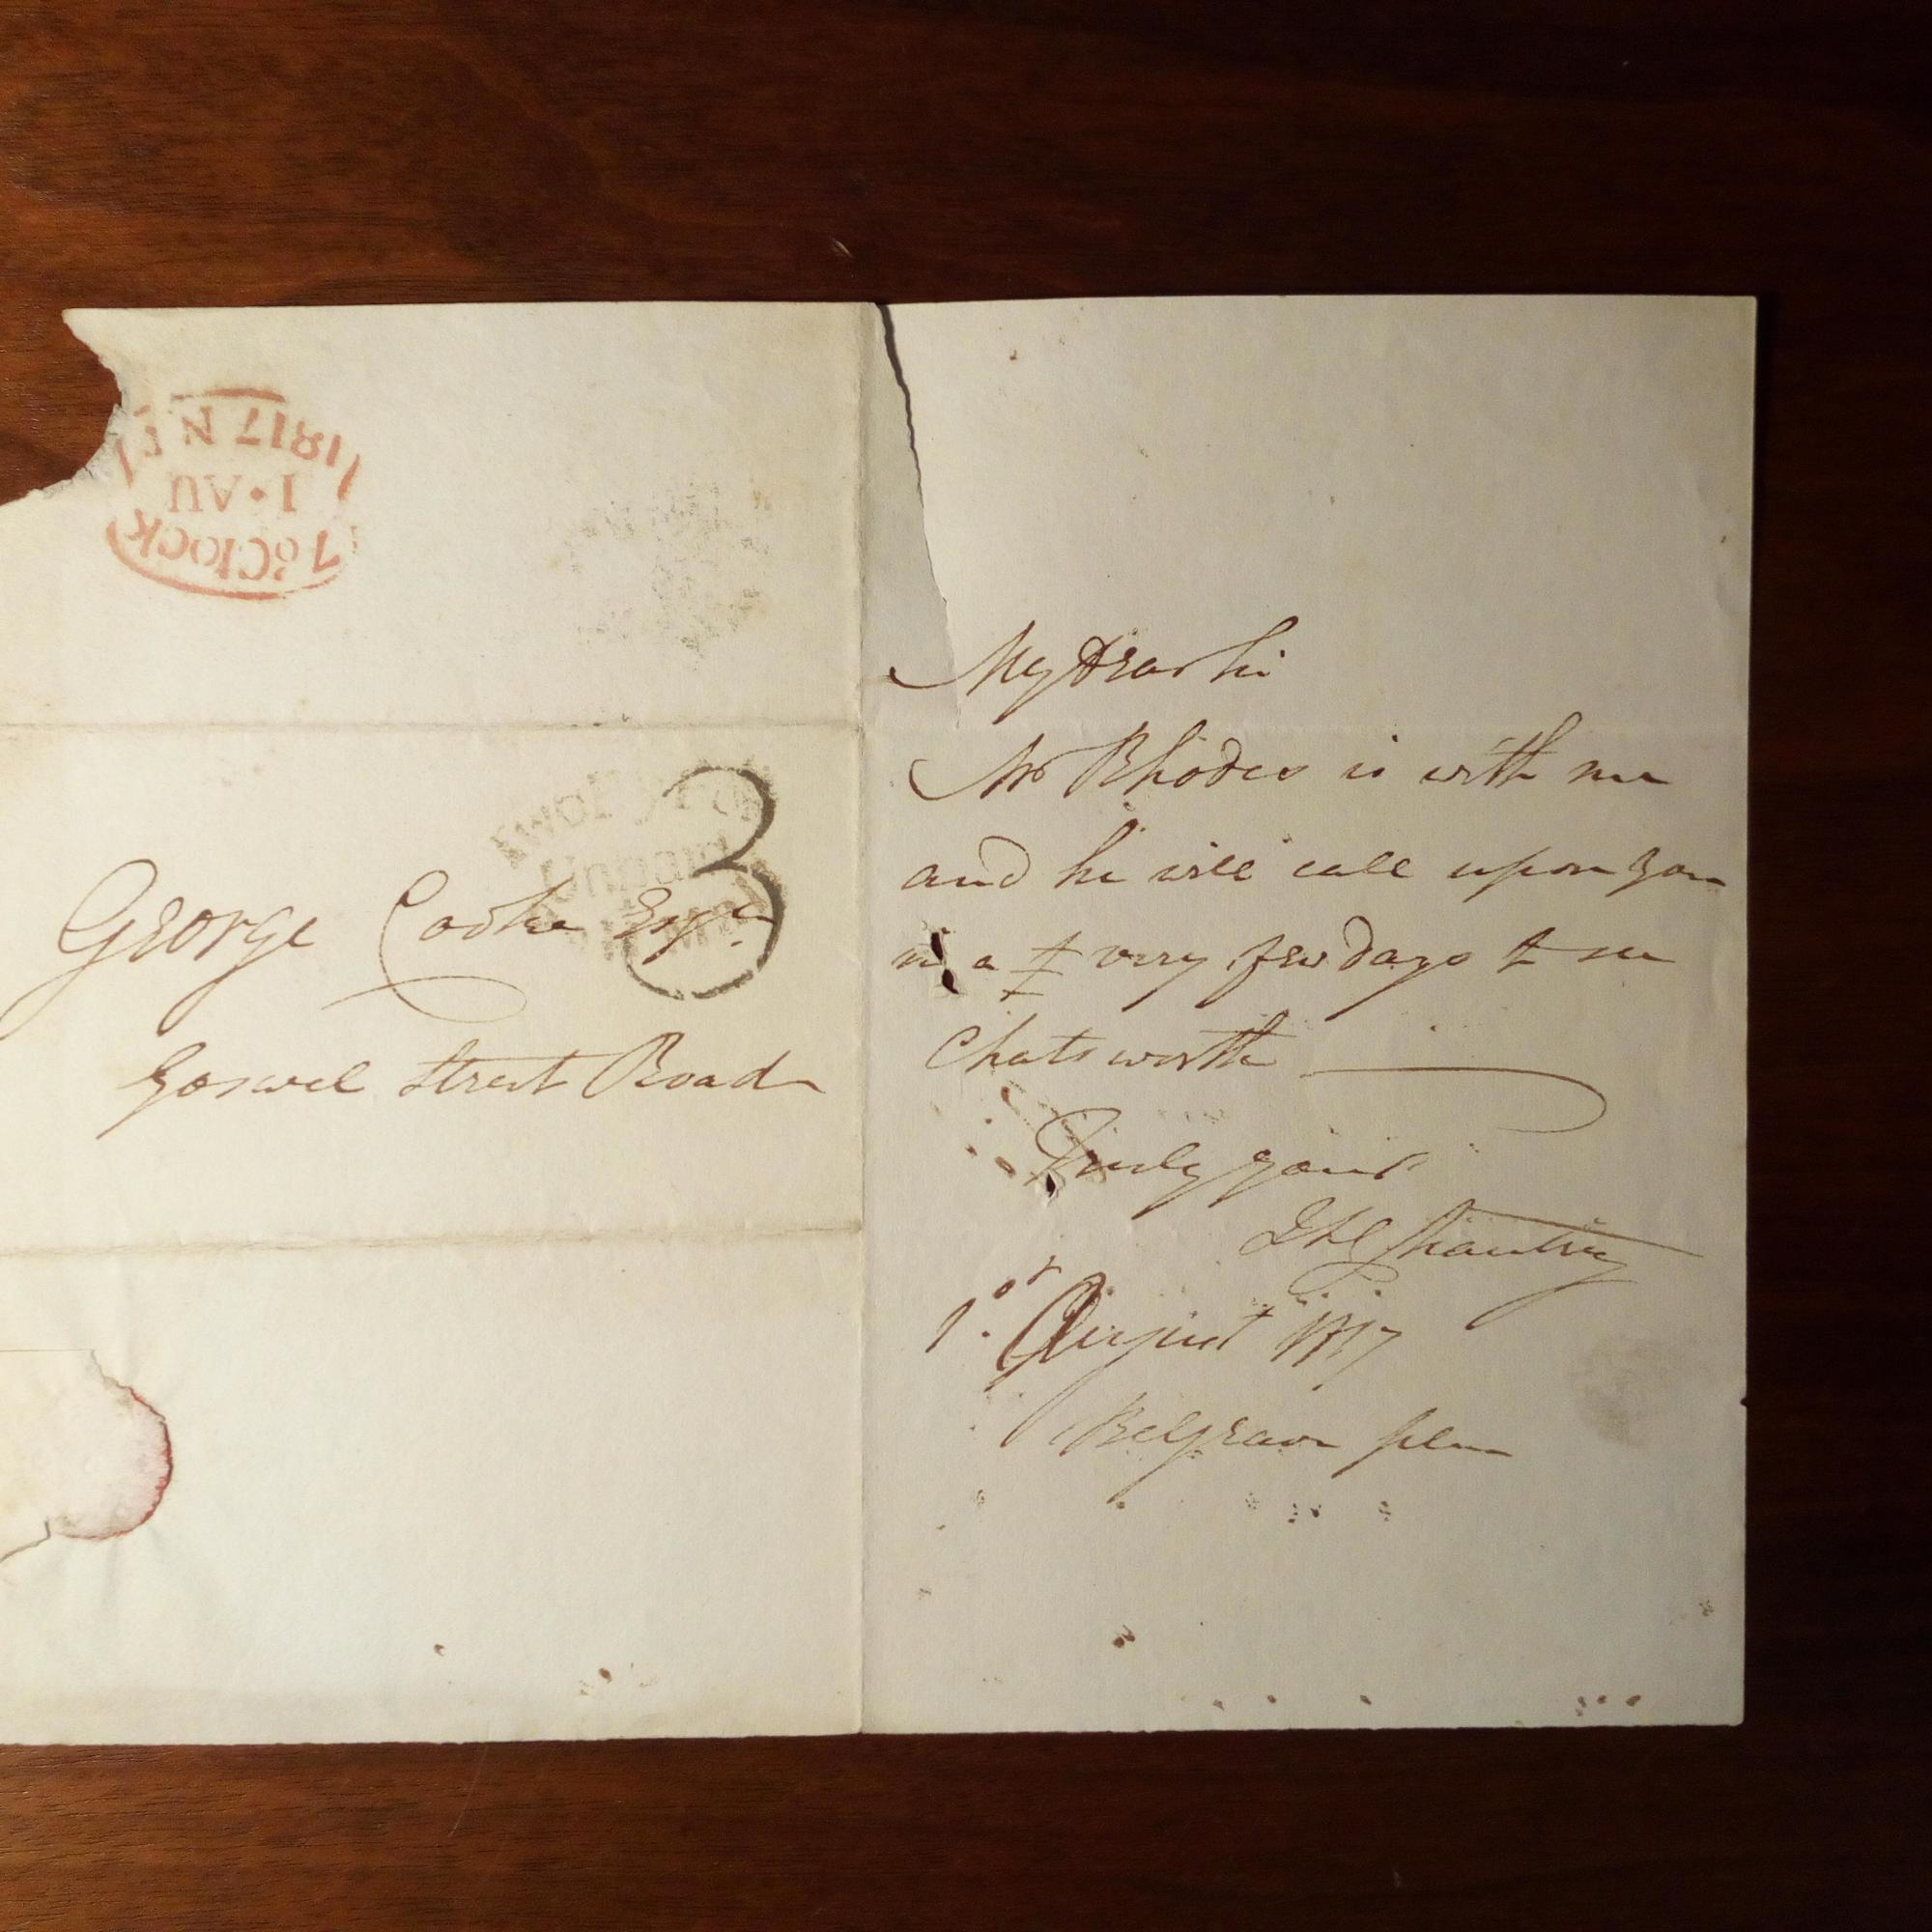 7 o'Clock
1 • AU
1817 N T
3
TWO PY P
Unpaid
George Cooke Esqre
Goswel Street Road
My Dear Sir
Mr Rhodes is with me
and he will call upon you
in a very few days to see
Chatsworth
Truly yours
Chantrey
1st August 1817
Belgrave place